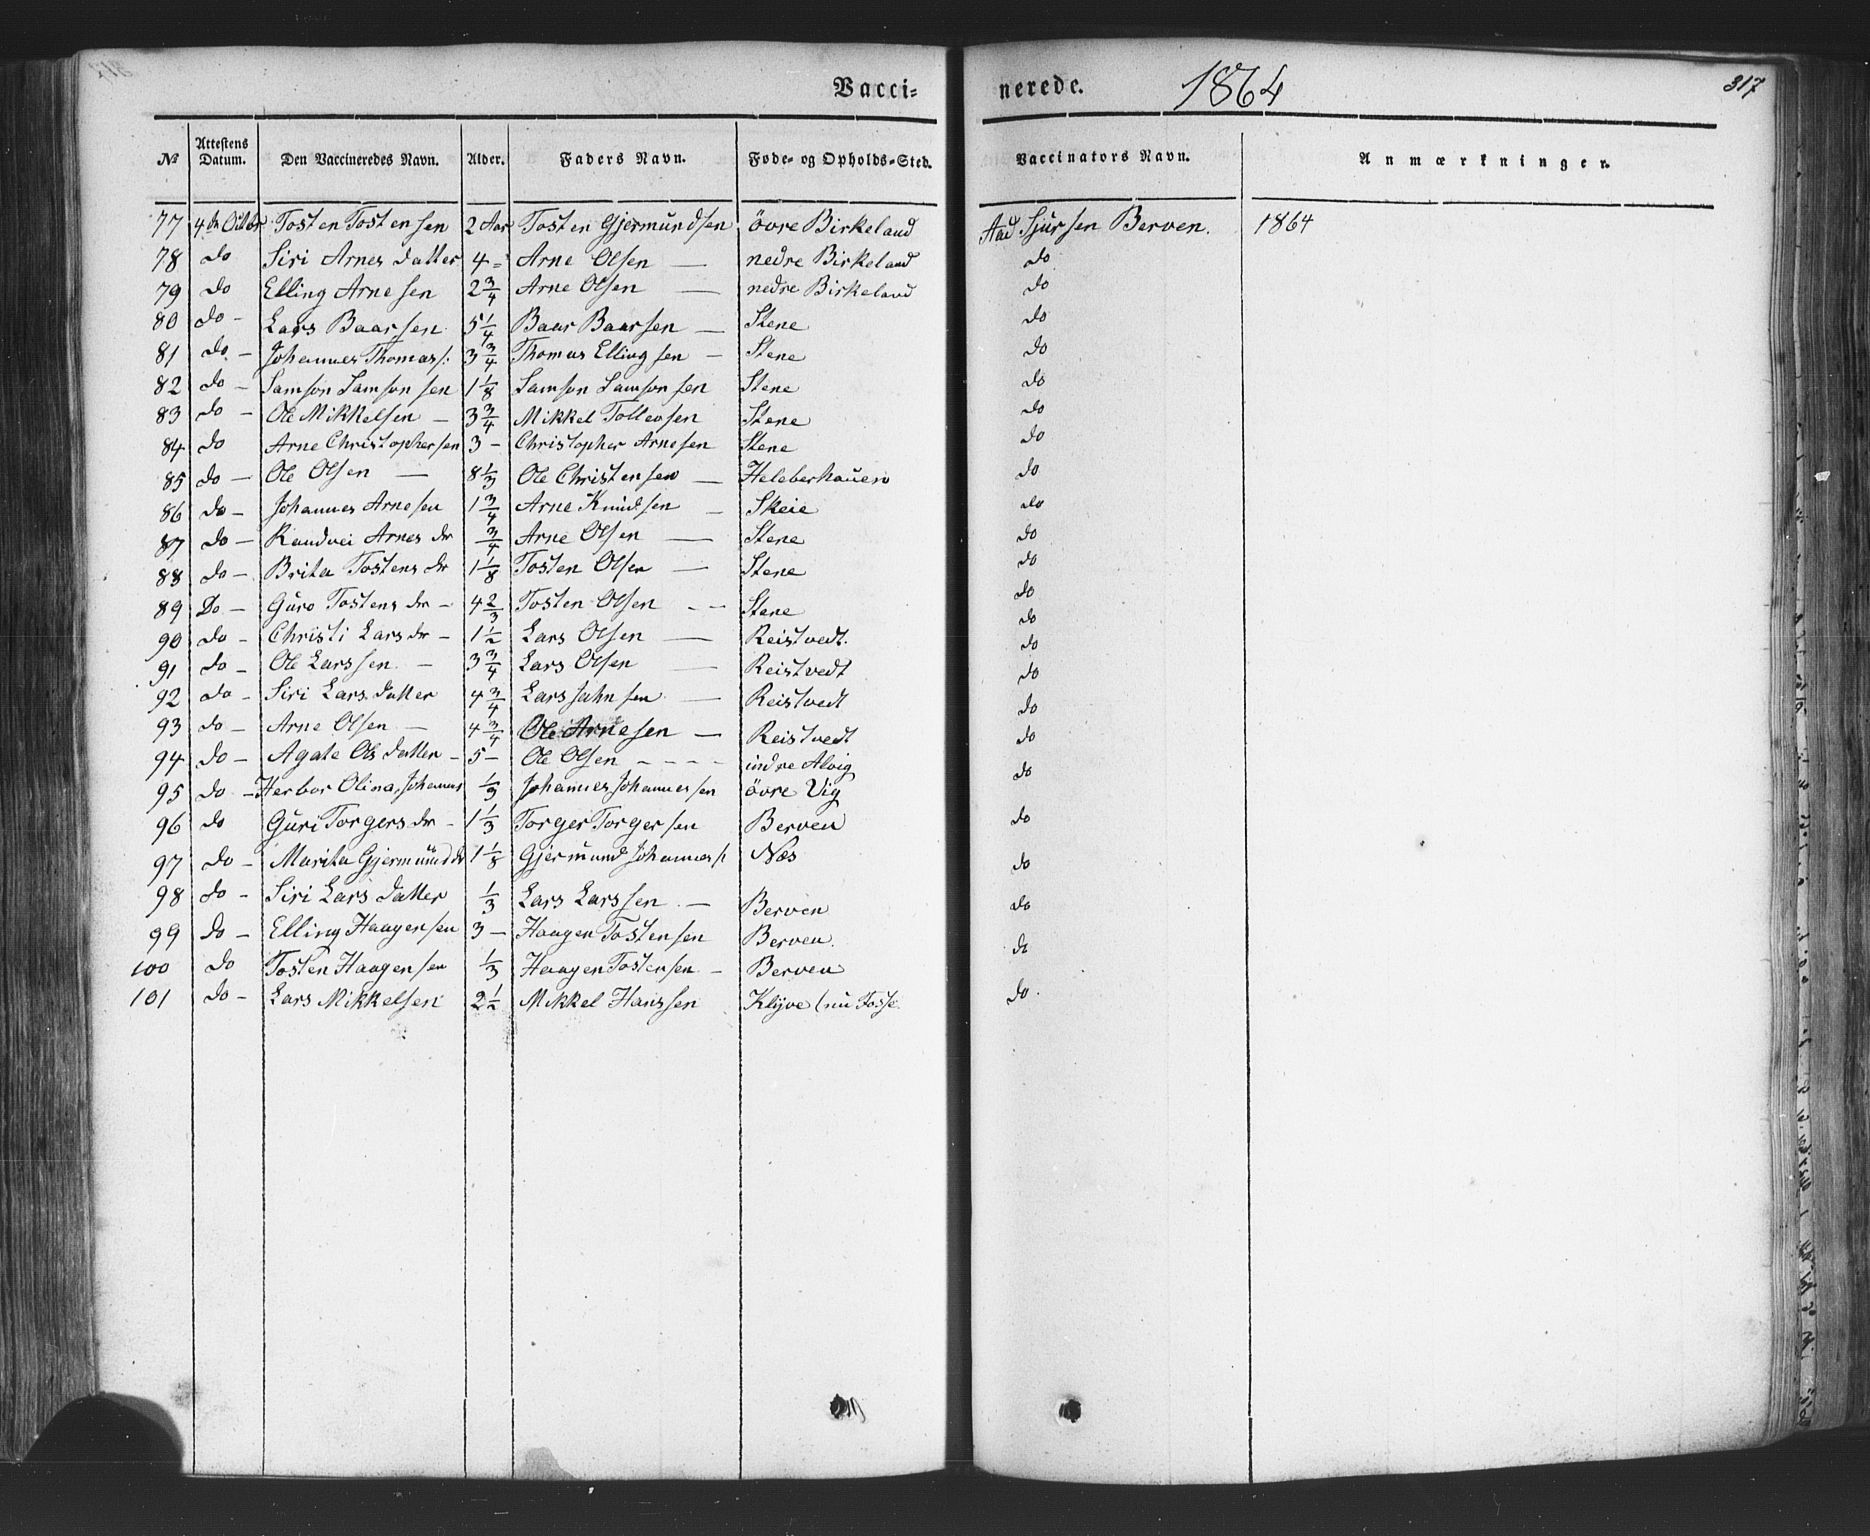 Vacci- nerede. 1864 317
No Attestens Datum. Den Vaccineredes Navn. Alder. Faders Navn. Føde- og Opholds-Sted. Vaccinators Navn. Anmærkninger.
77 4de Octbr Tosten Tostensen 2 Aar Tosten Gjermundsen övre Birkeland Aad Sjursen Berven. 1864
78 do Siri Arnesdatter 4 = Arne Olsen — nedre Birkeland do
79 do Elling Arnesen 2 3/4 Arne Olsen — nedre Birkeland do
80 do - Lars Baarsen 5 1/4 Baar Baarsen — Stene do
81 do. - Johannes Thomass: 3 3/4 Thomas Ellingsen - Stene do
82 do - Samson Samsonsen 1 1/8 Samson Samsonsen Stene do
83 do - Ole Mikkelsen - 3 3/4 Mikkel Tollevsen Stene do
84 do Arne Christophersen 3 - Christopher Arnesen Stene do
85 do - Ole Olsen — 8 1/3 Ole Christensen — Heleberhauen do
86 do - Johannes Arnesen 1 3/4 Arne Knudsen - Skeie do
87 do - Randvei Arnes dr 3/4 Arne Olsen — Stene do
88 do - Brita Tostens dr 1 1/8 Tosten Olsen — Stene do
89 Do - Guro Tostens dr - 4 2/3 Tosten Olsen - - Stene do
90 do - Christi Lars dr - 1 1/2 Lars Olsen — Reistvedt. do
91 do - Ole Larssen. - 3 3/4 Lars Olsen Reistvedt do
92 do - Siri Larsdatter 4 3/4 Lars Jahnsen — Reistvedt do
93 do - Arne Olsen - 4 3/4 Ole Arnesen — Reistvedt do
94 do - Agate Olsdatter - 5 - Ole Olsen - - - - indre Alvig do
95 do - Herbor Olina Johannes 1/3 Johannes Johannessen övre Vig do
96 do Guri Torgers dr - 1 1/3 Torger Torgersen Berven do
97 do - Marita Gjermund dr 1 1/8 Gjermund Johanness: Næs do
98 do - Siri Larsdatter 1/3 Lars Larssen. — Berven do
99 do - Elling Haagensen 3 - Haagen Tostensen Berven. do
100 do Tosten Haagensen 1/3 Haagen Tostensen - Berven do
101 do - Lars Mikkelsen 2 1/2 Mikkel Hanssen Klyve (nu Fosse do.